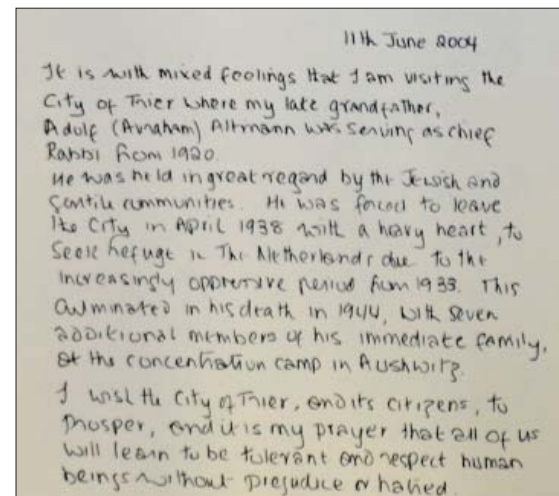 11th June 2004
It is with mixed feelings that I am visiting the
City of Trier where my late grandfather,
Adolf (Avraham) Altmann was serving as chief
Rabbi from 1920.
He was held in great regard by the Jewish and
Gentile communities. He was forced to leave
the City in April 1938 with a heavy heart, to
Seek Refuge in The Netherlands due to the
increasingly oppressive period from 1933. This
Culminated in his death in 1944, with seven
additional members of his immediate family,
at the concentration camp in Aushwitz.
I wish the City of Trier, and its citizens, to
Prosper, and it is my prayer that all of us
will learn to be tolerant and respect human
beings without prejudice or hatred